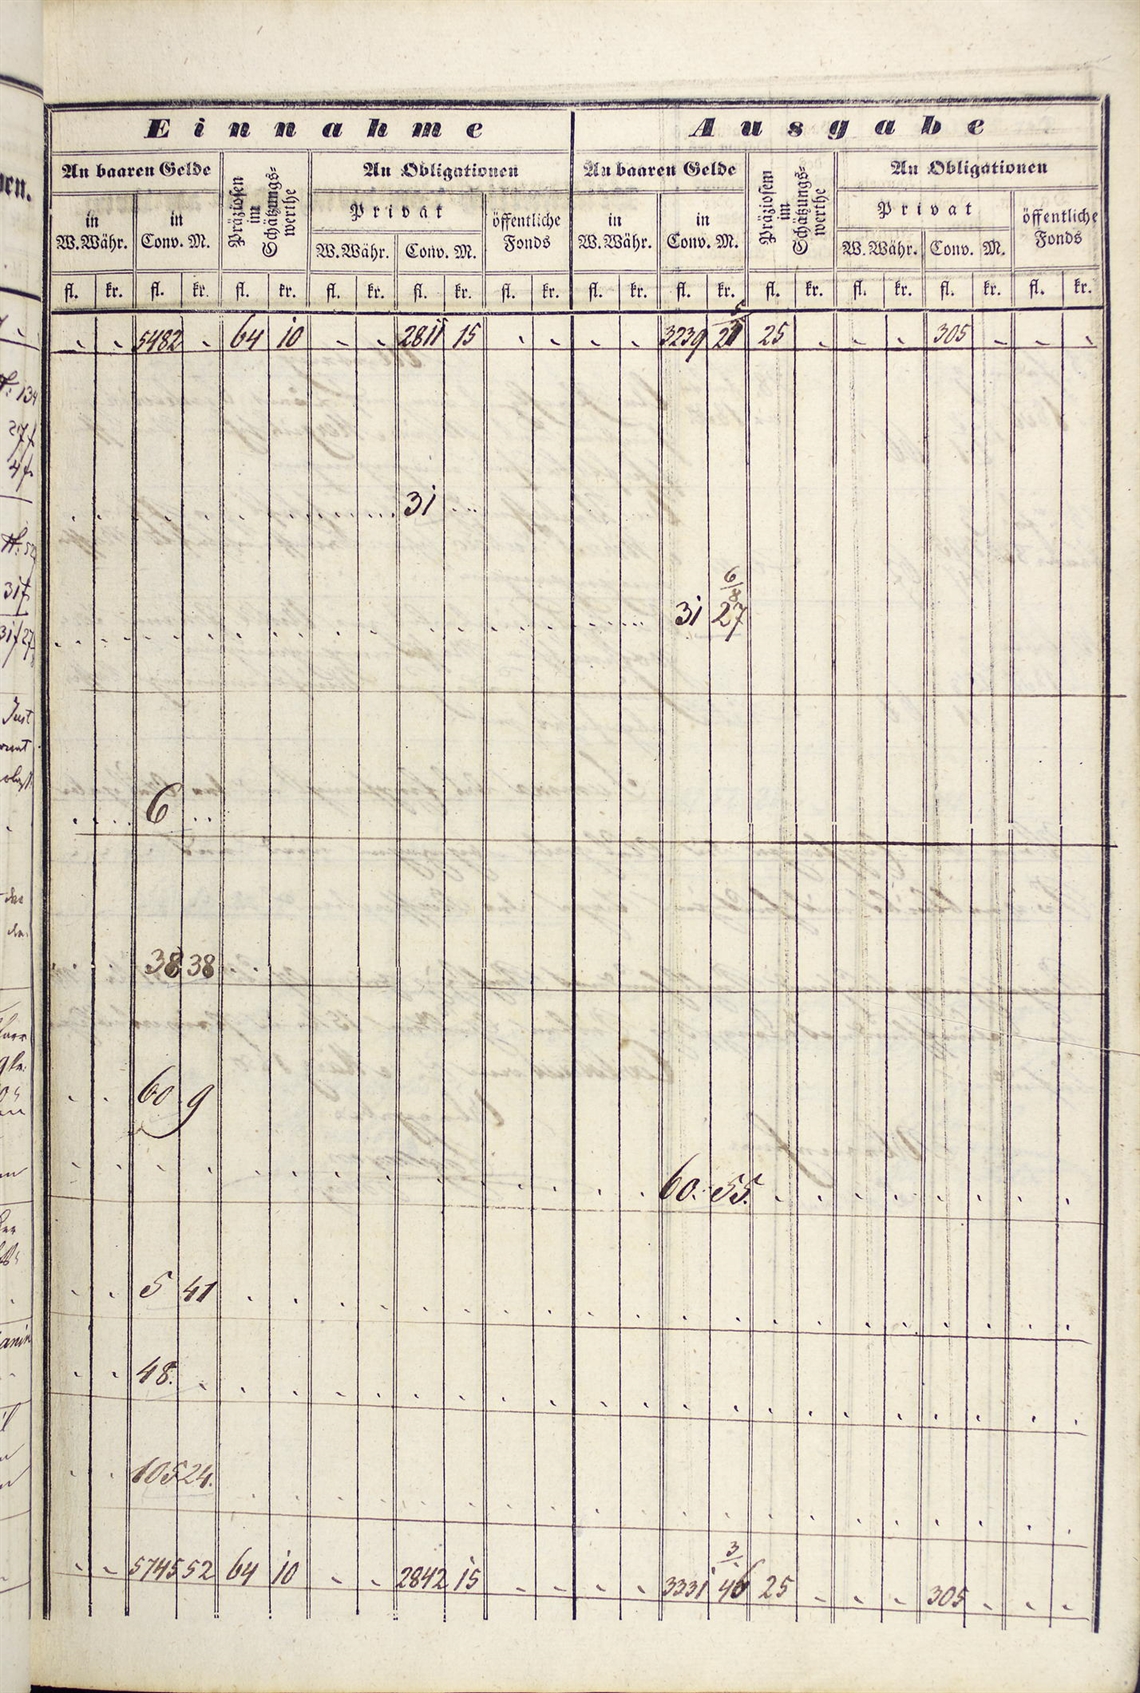 Einnahme Ausgabe
An baaren Gelde Präziosen im Schätzungs-werthe An Obligationen An baaren Gelde Präziosem im Schätzungs-werthe An Obligationen
in W.Währ. in Conv. M. Privat öffentliche Fonds in W.Währ. in Conv. M. Privat öffentliche Fonds
W.Währ. Conv. M. W.Währ. Conv. M.
fl. kr. fl. kr. fl. kr. fl. kr. fl. kr. fl. kr. fl. kr. fl. kr. fl. kr. fl. kr. fl. kr. fl. kr.
5482 64 10 2811 15 3239 25 305
31
31 27 6/8
6
38 38
60 9
60. 55.
5 41
48.
105 24.
5745 52 64 10 2842 15 3331 46 25 305